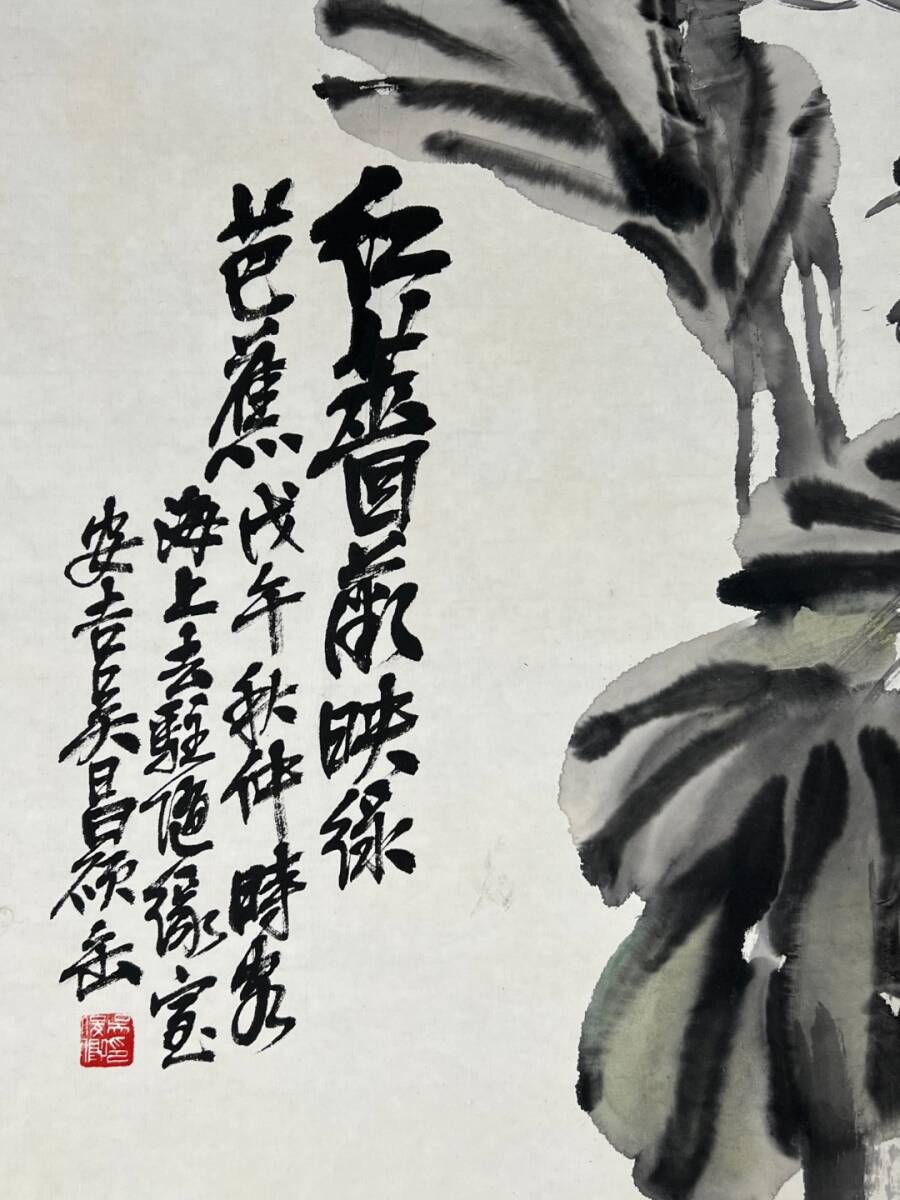 紅薔薇映綠
芭蕉 戊午秋仲時客
海上去駐隨緣室
安吉吳昌碩缶